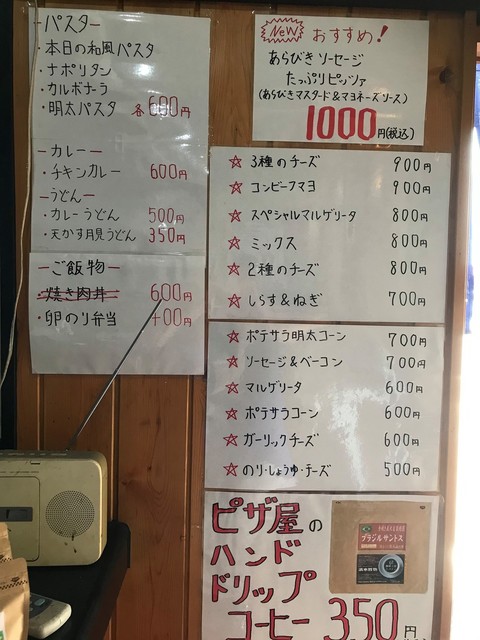 ーパスター
・本日の和風パスタ
・ナポリタン
・カルボナーラ
・明太パスタ 各600円
ーカレー
・チキンカレー 600円
ーうどんー
・カレーうどん 500円
・天かす月見うどん 350円
ーご飯物ー
・焼き肉丼 600円
・卵のり弁当 400円
NeW おすすめ!
あらびきソーセージ
たっぷりピッツァ
(あらびきマスタード&マヨネーズソース)
1000円(税込)
☆ 3種のチーズ 900円
☆ コンビーフマヨ 900円
☆ スペシャルマルゲリータ 800円
☆ ミックス 800円
☆ 2種のチーズ 800円
☆ しらす&ねぎ 700円
☆ ポテサラ明太コーン 700円
☆ ソーセージ&ベーコン 700円
☆ マルゲリータ 600円
☆ ポテサラコーン 600円
☆ ガーリックチーズ 600円
☆ のり・しょうゆ・チーズ 500円
ピザ屋の
ハンド
ドリップ
コーヒー 350円
ブラジルサントス